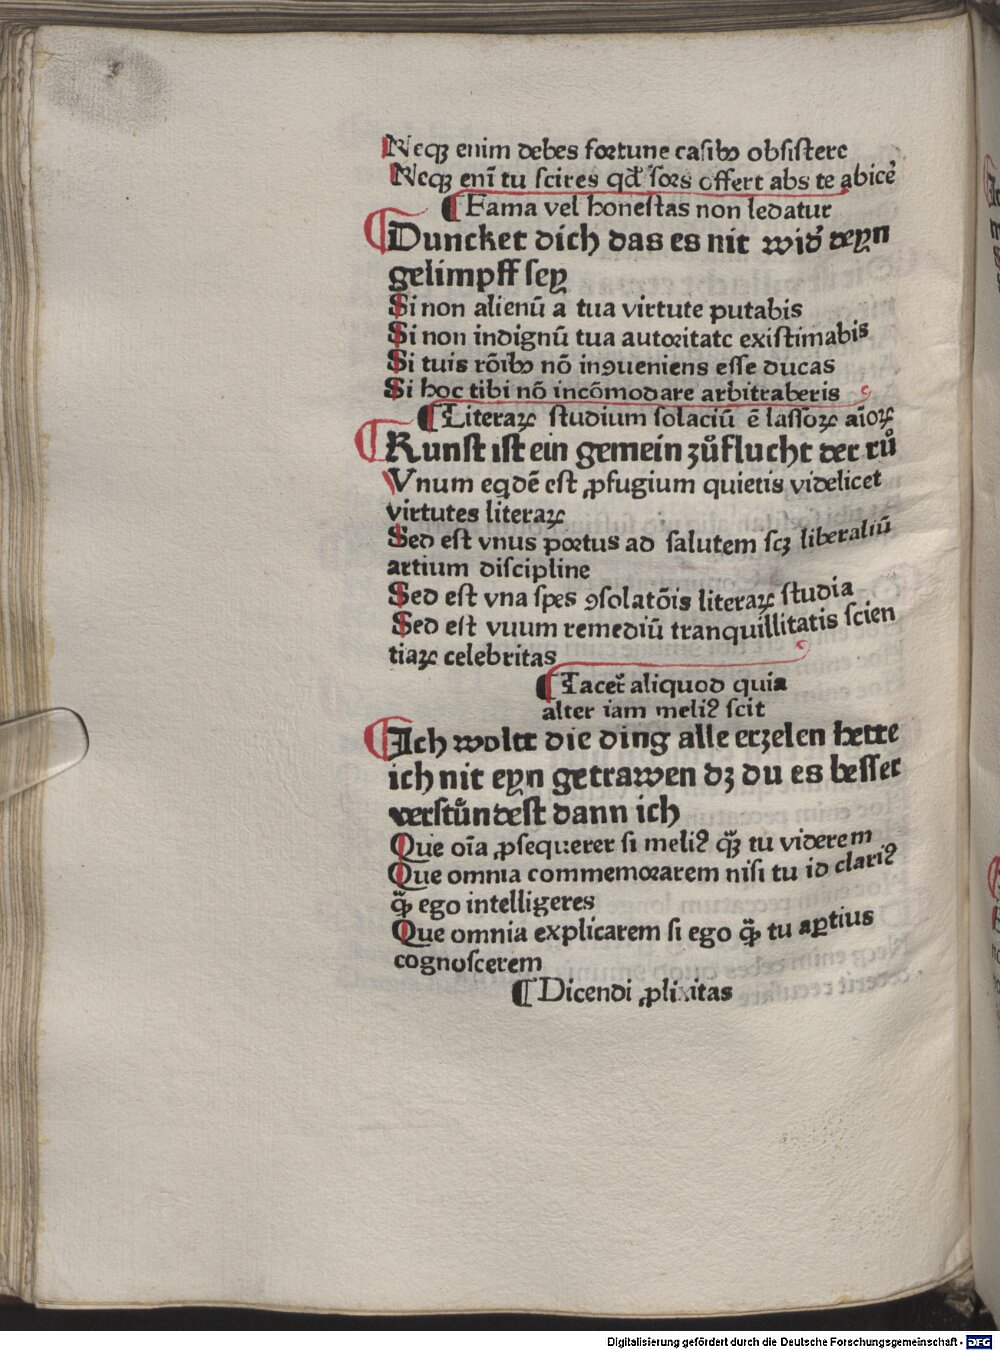 Neqꝫ enim debes fortune casibꝰ obsistere
Neqꝫ eni᷑ tu scires qd᷑ sors offert abs te abice᷑
¶ Fama vel honestas non ledatur
Duncket dich das es nit wid᷑ deyn
gelimpff sey
Si non alienū a tua virtute putabis
Si non indignū tua autoritate existimabis
Si tuis rōibꝰ nō inꝯueniens esse ducas
Si hoc tibi nō incōmodare arbitraberis
¶ Literaꝝ studium solaciū ē lassoꝝ aīoꝝ
Kunst ist ein gemein zůflucht der rů
Vnum eqdē est ꝓfugium quietis videlicet
virtutes literaꝝ
Sed est vnus portus ad salutem scꝫ liberaliū
artium discipline
Sed est vna spes ꝯsolatōis literaꝝ studia
Sed est vuum remediū tranquillitatis scien
tiaꝝ celebritas
¶ Tacet᷑ aliquod quia
alter iam meliꝰ scit
Ich wolte die ding alle erzelen hette
ich nit eyn getrawen dꝫ du es besser
verstůndest dann ich
Que oīa ꝓsequerer si meliꝰ qᷓꝫ tu viderem
Que omnia commemorarem nisi tu id clariꝰ
qᷓꝫ ego intelligeres
Que omnia explicarem si ego qᷓꝫ tu aꝑtius
cognoscerem
¶ Dicendi ꝓlixitas
Digitalisierung gefördert durch die Deutsche Forschungsgemeinschaft - DFG